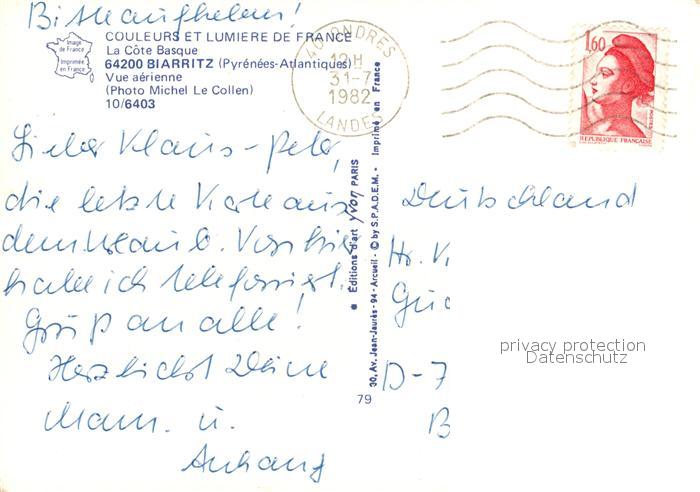 Bitte aufheben!
COULEURS ET LUMIERE DE FRANCE
Image de France
Imprimée en France
La Côte Basque
64200 BIARRITZ (Pyrénées-Atlantiques)
Vue aérienne
(Photo Michel Le Collen)
10/6403
40 ONDRES
12H
31-7
1982
LANDES
1,60
POSTES
REPUBLIQUE FRANÇAISE
Lieber Klaus-Peter,
die letzte Karte aus
dem Urlaub. Von hier
habe ich telefoniert.
Gruß an alle!
Herzlichst Deine
Mam. u.
Anhang
● Éditions d'art yvon PARIS
30, Av. Jean-Jaurès - 94 - Arcueil - © by S.P.A.D.E.M. - Imprimé en France
79
Deutschland
Hr. K
D-7
B
privacy protection
Datenschutz